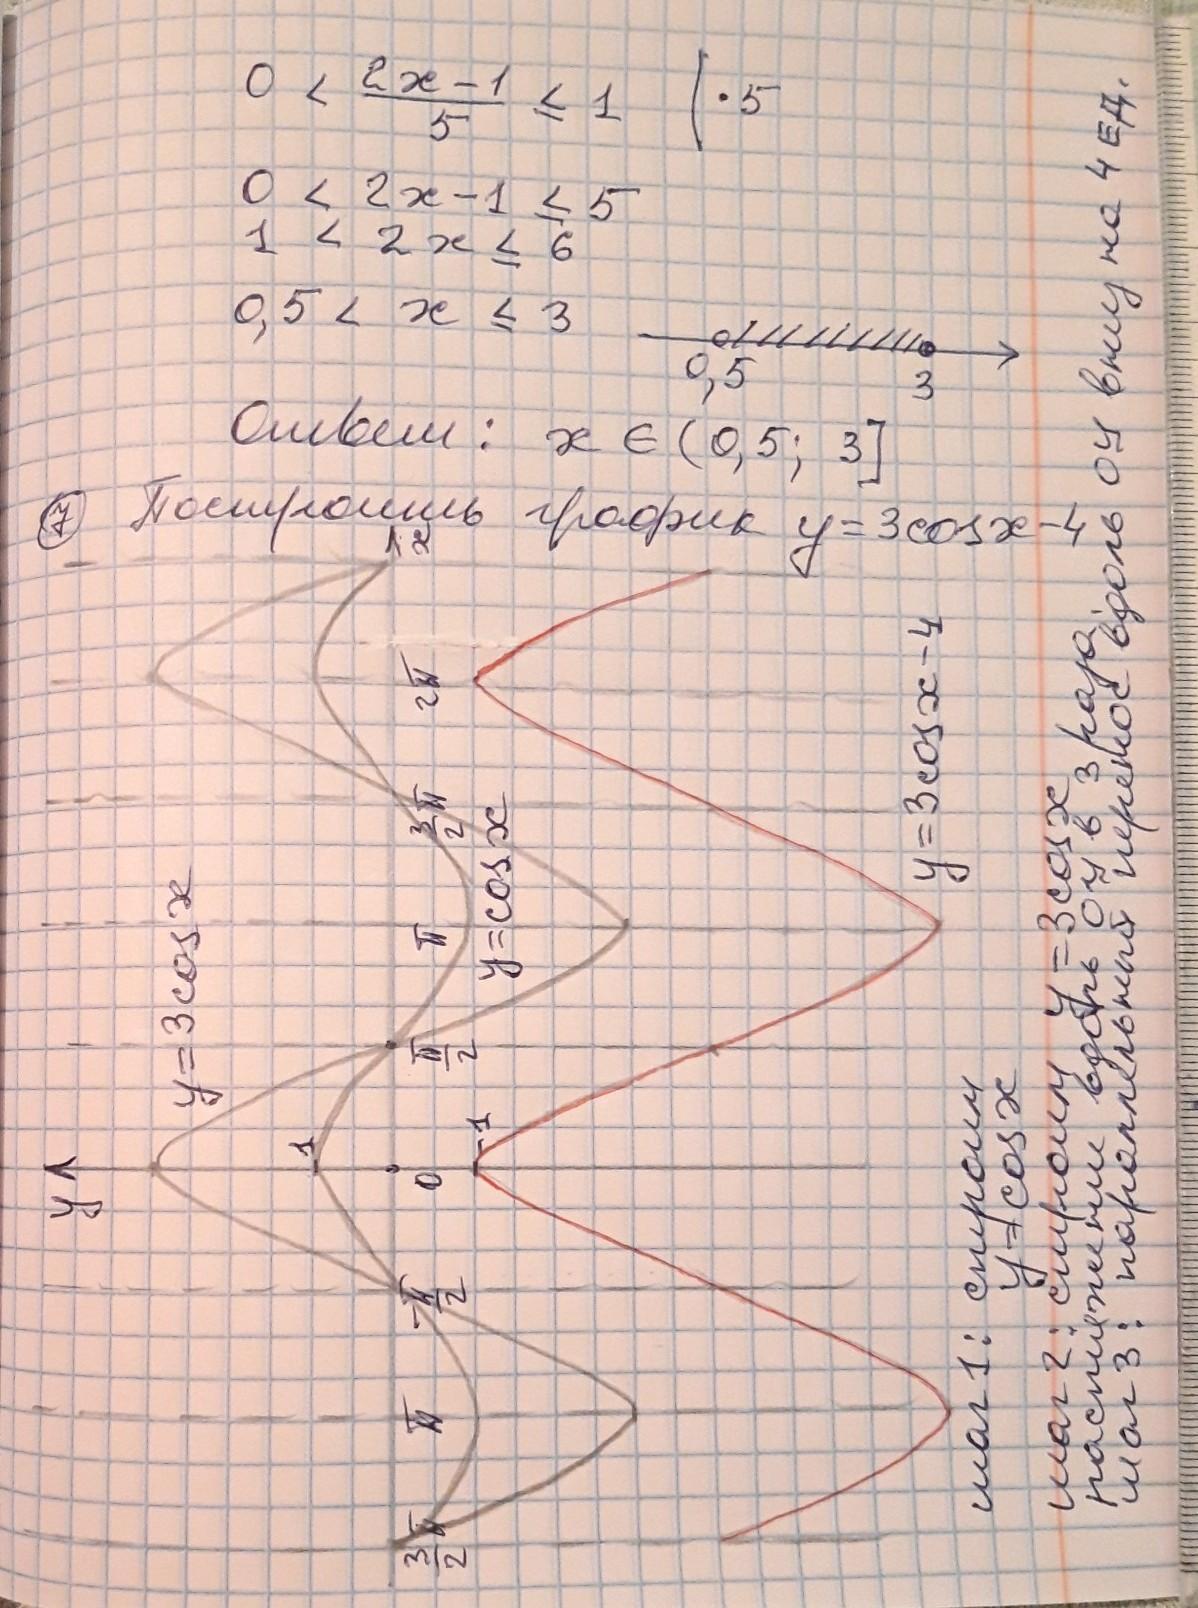 0 < (2x-1)/5 ≤ 1 | · 5
0 < 2x-1 ≤ 5
1 < 2x ≤ 6
0,5 < x ≤ 3
0,5 3
Ответ: x ∈ (0,5; 3]
⑦ Построить график y=3cosx-4
y
x
y=3cosx
1
0
-1
3π/2
π
-π/2
π/2
π
3π/2
2π
y=cosx
y=3cosx-4
шаг 1: строим
y=cosx
шаг 2: строим y=3cosx
растяжение вдоль оу в 3 раза
шаг 3: параллельный перенос вдоль оу вниз на 4 ЕД.